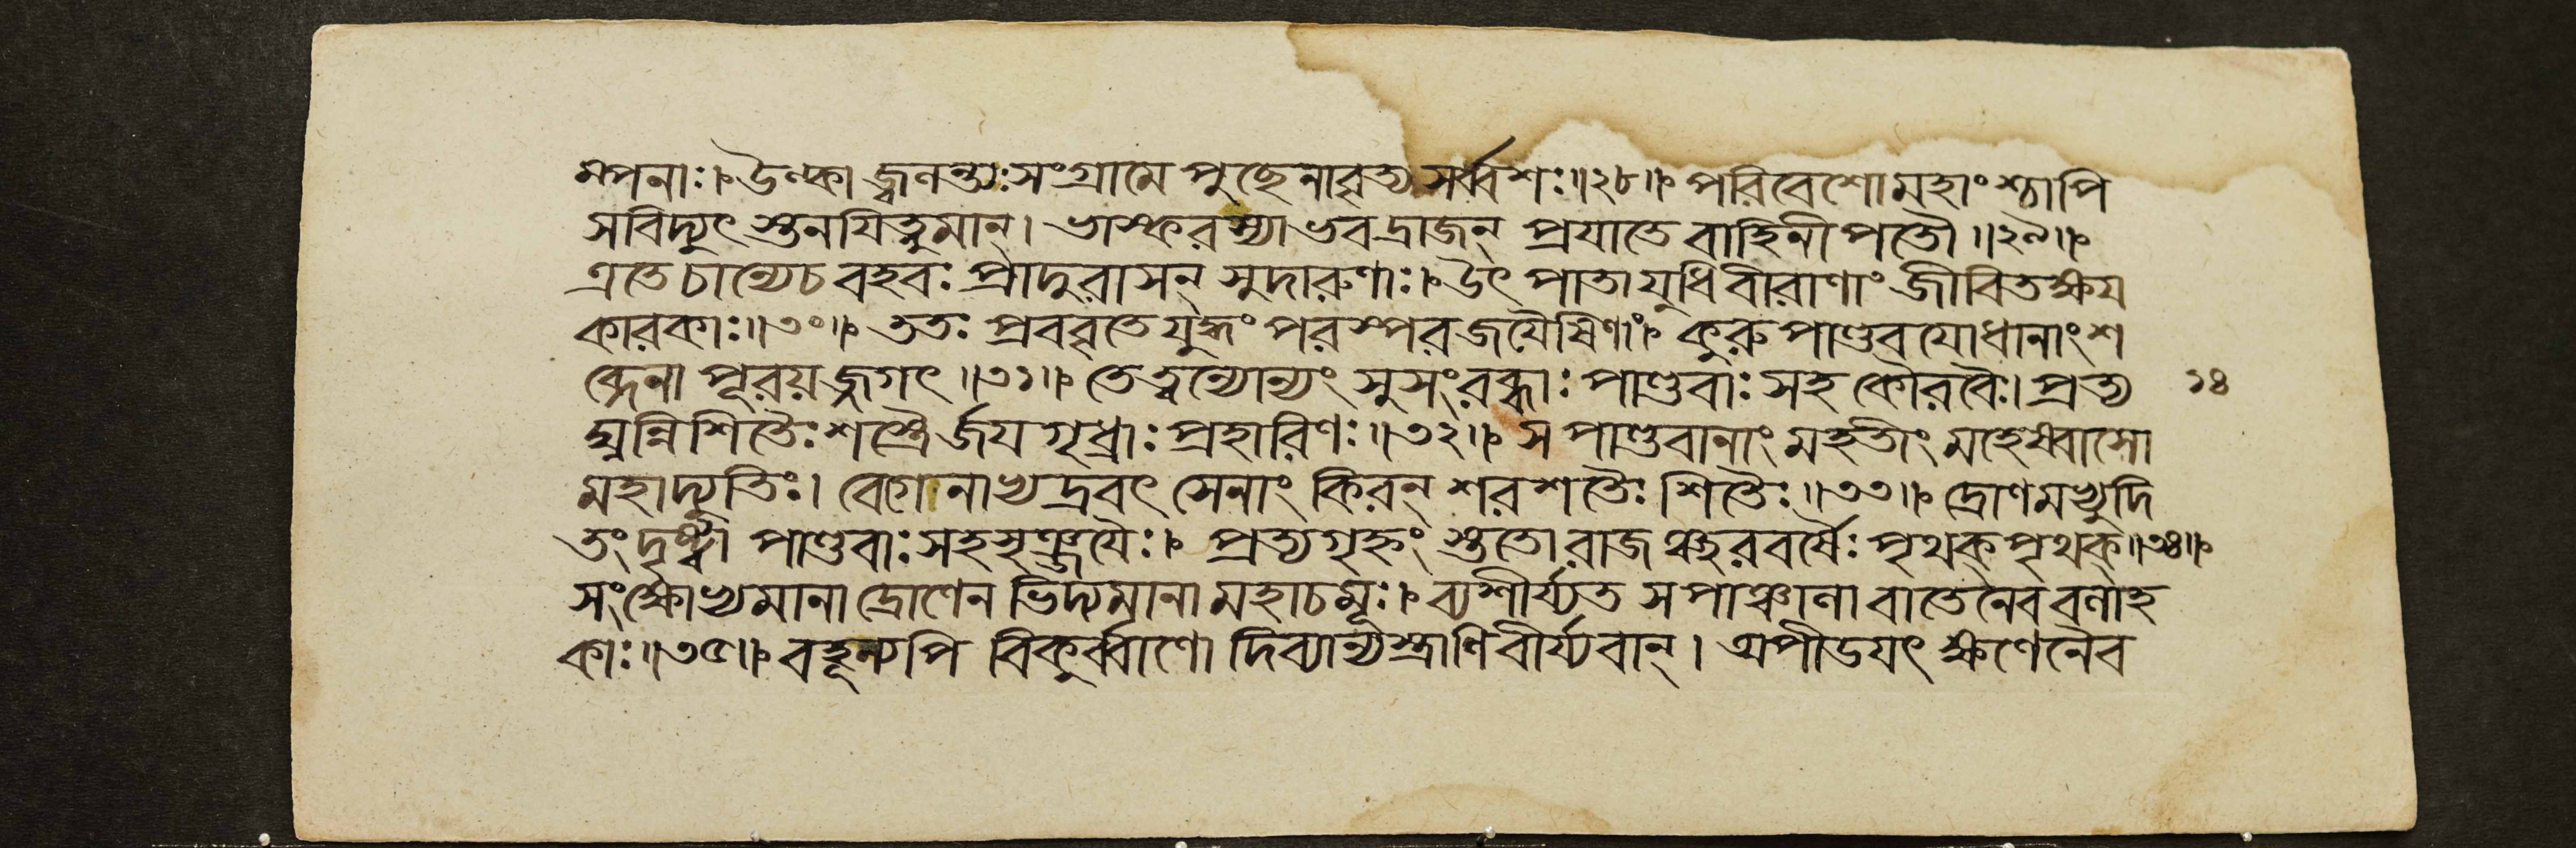 ম্পনাঃ। উল্কা জ্বলন্ত্যঃ সংগ্রামে পুছেনাবৃত্য সর্ব্বশঃ॥২৮॥ পরিবেশো মহাংশ্চাপি
সবিদ্যুৎ স্তনযিত্নুমান্। ভাস্করস্যাভবদ্রাজন্ প্রযাতে বাহিনীপতৌ॥২৯॥
এতে চান্যেচ বহবঃ প্রাদুরাসন্ সুদারুণাঃ। উৎপাতা যুধি বীরাণাং জীবিতক্ষয
কারকাঃ॥৩০॥ ততঃ প্রববৃতে যুদ্ধং পরস্পরজযৈষিণাং। কুরুপাণ্ডবযোধানাং শ
ব্দেনাপূরয়জ্জগৎ॥৩১॥ তে ত্বন্যোন্যং সুসংরব্ধাঃ পাণ্ডবাঃ সহ কৌরবৈঃ। প্রত্য ১৪
ঘ্নন্নিশিতৈঃ শস্ত্রৈর্জযগৃধ্রাঃ প্রহারিণঃ॥৩২॥ স পাণ্ডবানাং মহতীং মহেষ্বাসো
মহাদ্যুতিঃ। বেগেনাভ্যদ্রবৎ সেনাং কিরন্ শরশতৈঃ শিতৈঃ॥৩৩॥ দ্রোণমভ্যুদি
তং দৃষ্ট্বা পাণ্ডবাঃ সহসৃঞ্জযৈঃ। প্রত্যগৃহ্নং স্ততো রাজঞ্ছরবর্ষৈঃ পৃথক্ পৃথক্॥৩৪॥
সংক্ষোভ্যমানা দ্রোণেন ভিদ্যমানা মহাচমূঃ। ব্যশীর্য্যত সপাঞ্চালা বাতেনেব বলাহ
কাঃ॥৩৫॥ বহূন্যপি বিকুর্ব্বাণো দিব্যান্যস্ত্রাণি বীর্য্যবান্। অপীডযৎ ক্ষণেনৈব